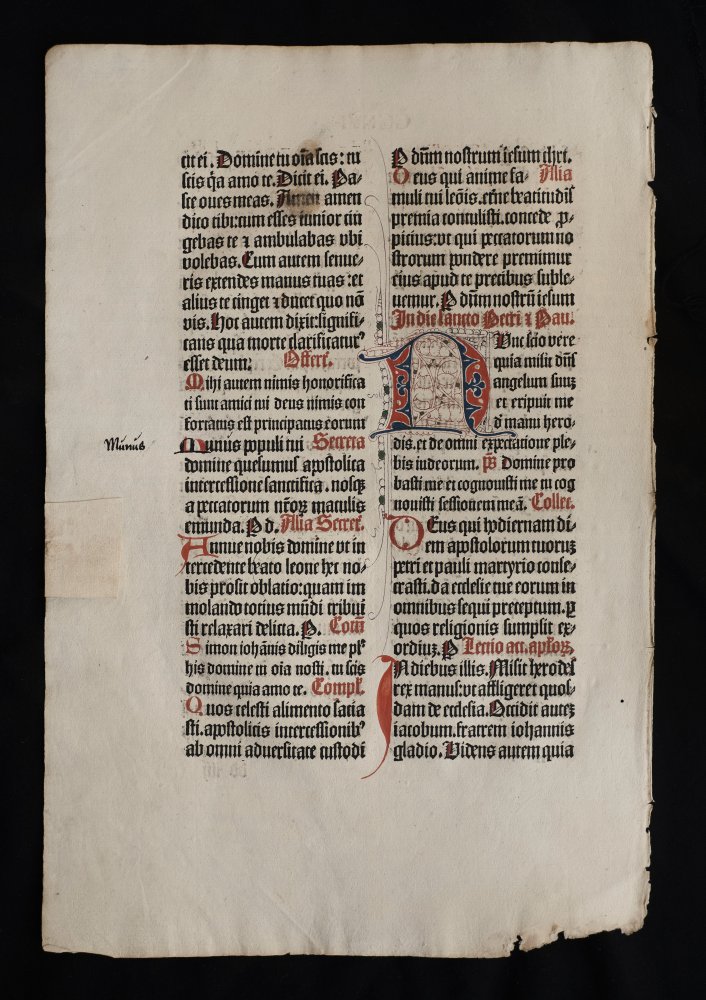 cit ei. Domine tu oīa scis: tu
scis q̄a amo te. Dicit ei. Pa-
sce oves meas. Amen amen
dico tibi: cum esses iunior cin
gebas te ⁊ ambulabas vbi
volebas. Cum autem senue-
ris extendes manus tuas: et
alius te cinget ⁊ ducet quo nō
vis. Hoc autem dixit: signifi-
cans qua morte clarificatur᾽
esset deum: Offert̄.
Mihi autem nimis honorifica
ti sunt amici tui deus nimis con
fortatus est principatus eorum
Munus
Munis populi tui Secreta
domine quesumus apostolica
intercessione sanctifica. nosqꝫ
a peccatorum nr̄oꝝ maculis
emunda. P d. Alia Secret̄.
Annue nobis domine vt in
tercedente beato leone hec no-
bis prosit oblatio: quam im
molando totius mūdi tribui
sti relaxari delicta. P. Cōm̄
Simon iohānis diligis me plꝰ
his domine tu oīa nosti. tu scis
domine quia amo te. Compl̄.
Quos celesti alimento satia
sti. apostolicis intercessionibꝰ
ab omni aduersitate custodi
P dn̄m nostrum iesum chrī.
Deus qui anime fa- Alia
muli tui leōis. et̄ne beatitudīs
premia contulisti. concede ꝓ-
picius: vt qui peccatorum no
strorum pondere premimur
eius apud te precibus suble-
uemur. P dn̄m nostrū iesum
In die sancto Petri ⁊ Pau.
Nunc scio vere
quia misit dn̄s
angelum suuꝫ
et eripuit me
d̄ manu hero-
dis. et de omni expectatione ple-
bis iudeorum. p̄s Domine pro
basti me et cognouisti me tu cog
nouisti sessionem meā. Collec.
Deus qui hodiernam di-
em apostolorum tuoruꝫ
petri et pauli martyrio conse-
crasti. da ecclesie tue eorum in
omnibus sequi preceptum. ꝑ
quos religionis sumpsit ex-
ordiuꝫ. P Lectio act. apl̄oꝝ.
In diebus illis. Misit herodes
rex manus: vt affligeret quos-
dam de ecclesia. Occidit auteꝫ
iacobum. fratrem iohannis
gladio. Videns autem quia